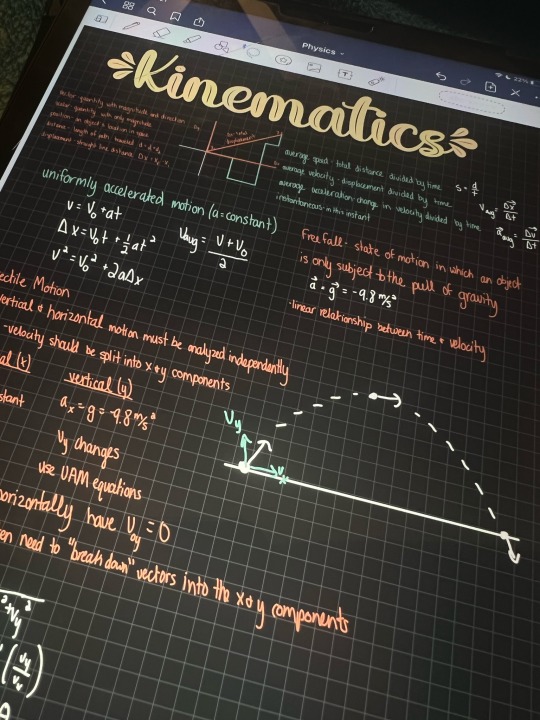 Physics
22%
Kinematics
Vector - quantity with magnitude and direction
Scalar - quantity with only magnitude
position - an object's location in space
distance - length of path traveled
displacement - straight line distance ΔX = X₂ - X₁
displacement
average speed - total distance divided by time s = d/t
average velocity - displacement divided by time Vavg = Δx/Δt
average acceleration - change in velocity divided by time aavg = Δv/Δt
instantaneous - in this instant
uniformly accelerated motion (a = constant)
v = V₀ + at
Δx = V₀t + 1/2 at²
v² = V₀² + 2aΔx
Vavg = V + V₀ / 2
Free fall - state of motion in which an object
is only subject to the pull of gravity
a = g = -9.8 m/s²
·linear relationship between time & velocity
ectile Motion
vertical & horizontal motion must be analyzed independently
-velocity should be split into x & y components
al (x)
vertical (y)
stant
aₓ = g = -9.8 m/s²
Vy changes
use UAM equations
Vy
Vx
horizontally have V₀y = 0
en need to "break down" vectors into the x & y components
² + Vy²
(Vy/Vx)